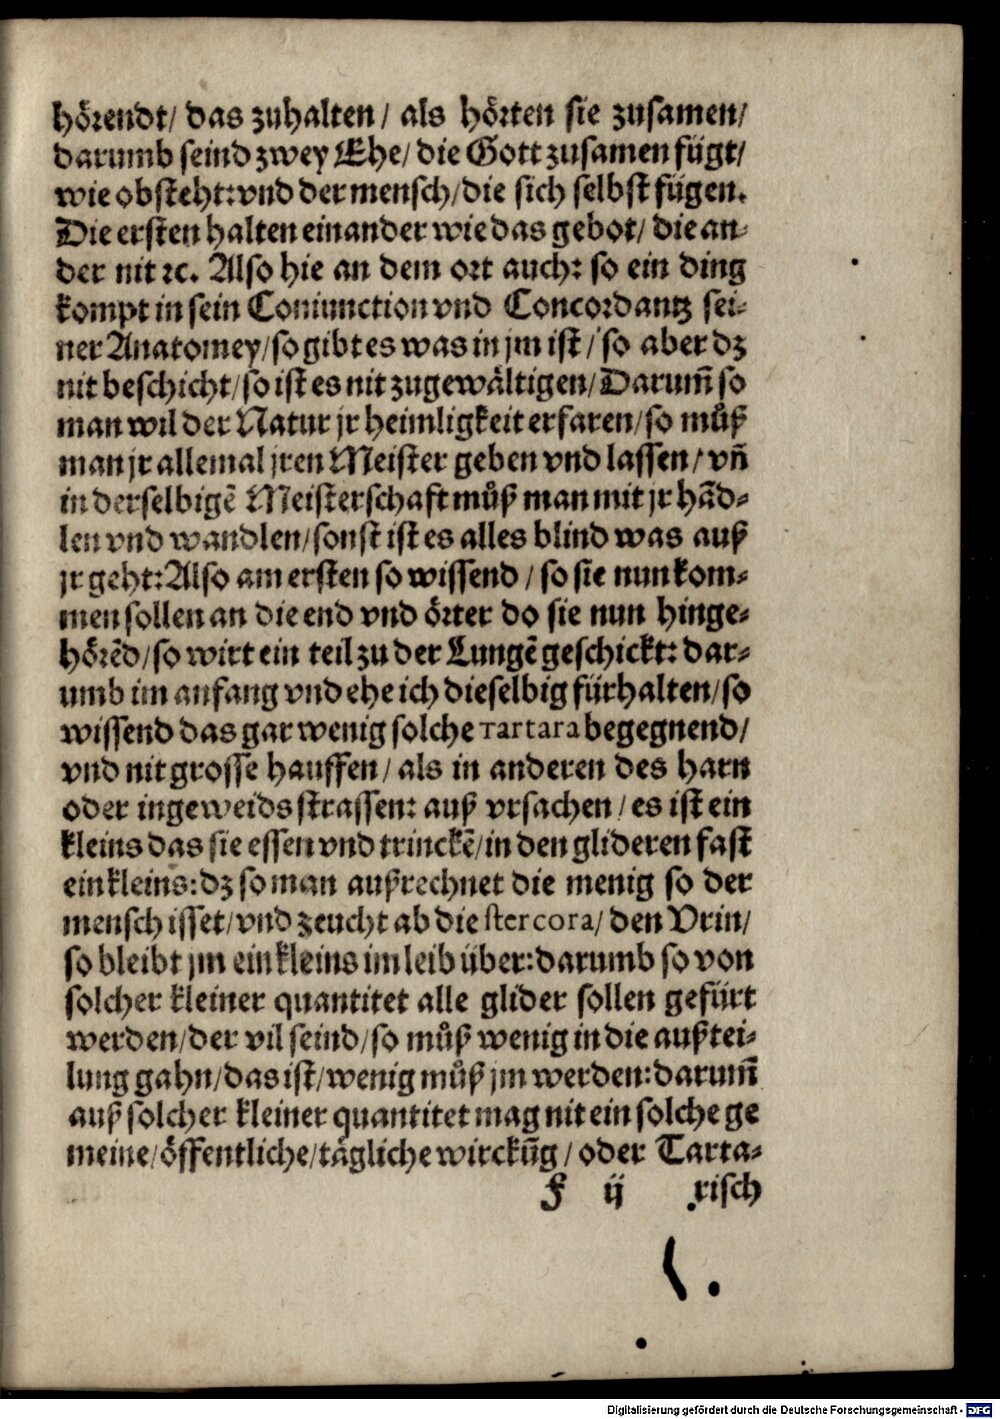 hörendt/ das zuhalten/ als hörten sie zusamen/
darumb seind zwey Ehe/ die Gott zusamen fügt/
wie obsteht: vnd der mensch/ die sich selbst fügen.
Die ersten halten einander wie das gebot/ die an-
der nit ꝛc. Also hie an dem ort auch: so ein ding
kompt in sein Coniunction vnd Concordantz sei-
ner Anatomey/ so gibt es was in jm ist/ so aber dz
nit beschicht/ so ist es nit zugewältigen/ Darum̃ so
man wil der Natur jr heimligkeit erfaren/ so můß
man jr allemal jren Meister geben vnd lassen/ vñ
in derselbigẽ Meisterschaft můß man mit jr hãd-
len vnd wandlen/ sonst ist es alles blind was auß
jr geht: Also am ersten so wissend/ so sie nun kom-
men sollen an die end vnd örter do sie nun hinge-
hörẽd/ so wirt ein teil zu der Lungẽ geschickt: dar-
umb im anfang vnd ehe ich dieselbig fürhalten/ so
wissend das gar wenig solche Tartara begegnend/
vnd nit grosse hauffen/ als in anderen des harn
oder ingeweids strassen: auß vrsachen/ es ist ein
kleins das sie essen vnd trinckẽ/ in den glideren fast
ein kleins: dz so man außrechnet die menig so der
mensch isset/ vnd zeucht ab die stercora/ den Vrin/
so bleibt jm ein kleins im leib über: darumb so von
solcher kleiner quantitet alle glider sollen gefürt
werden/ der vil seind/ so můß wenig in die außtei-
lung gahn/ das ist/ wenig můß jm werden: darum̃
auß solcher kleiner quantitet mag nit ein solche ge
meine/ öffentliche/ tägliche wirckũg/ oder Tarta-
F ij risch
Digitalisierung gefördert durch die Deutsche Forschungsgemeinschaft - DFG